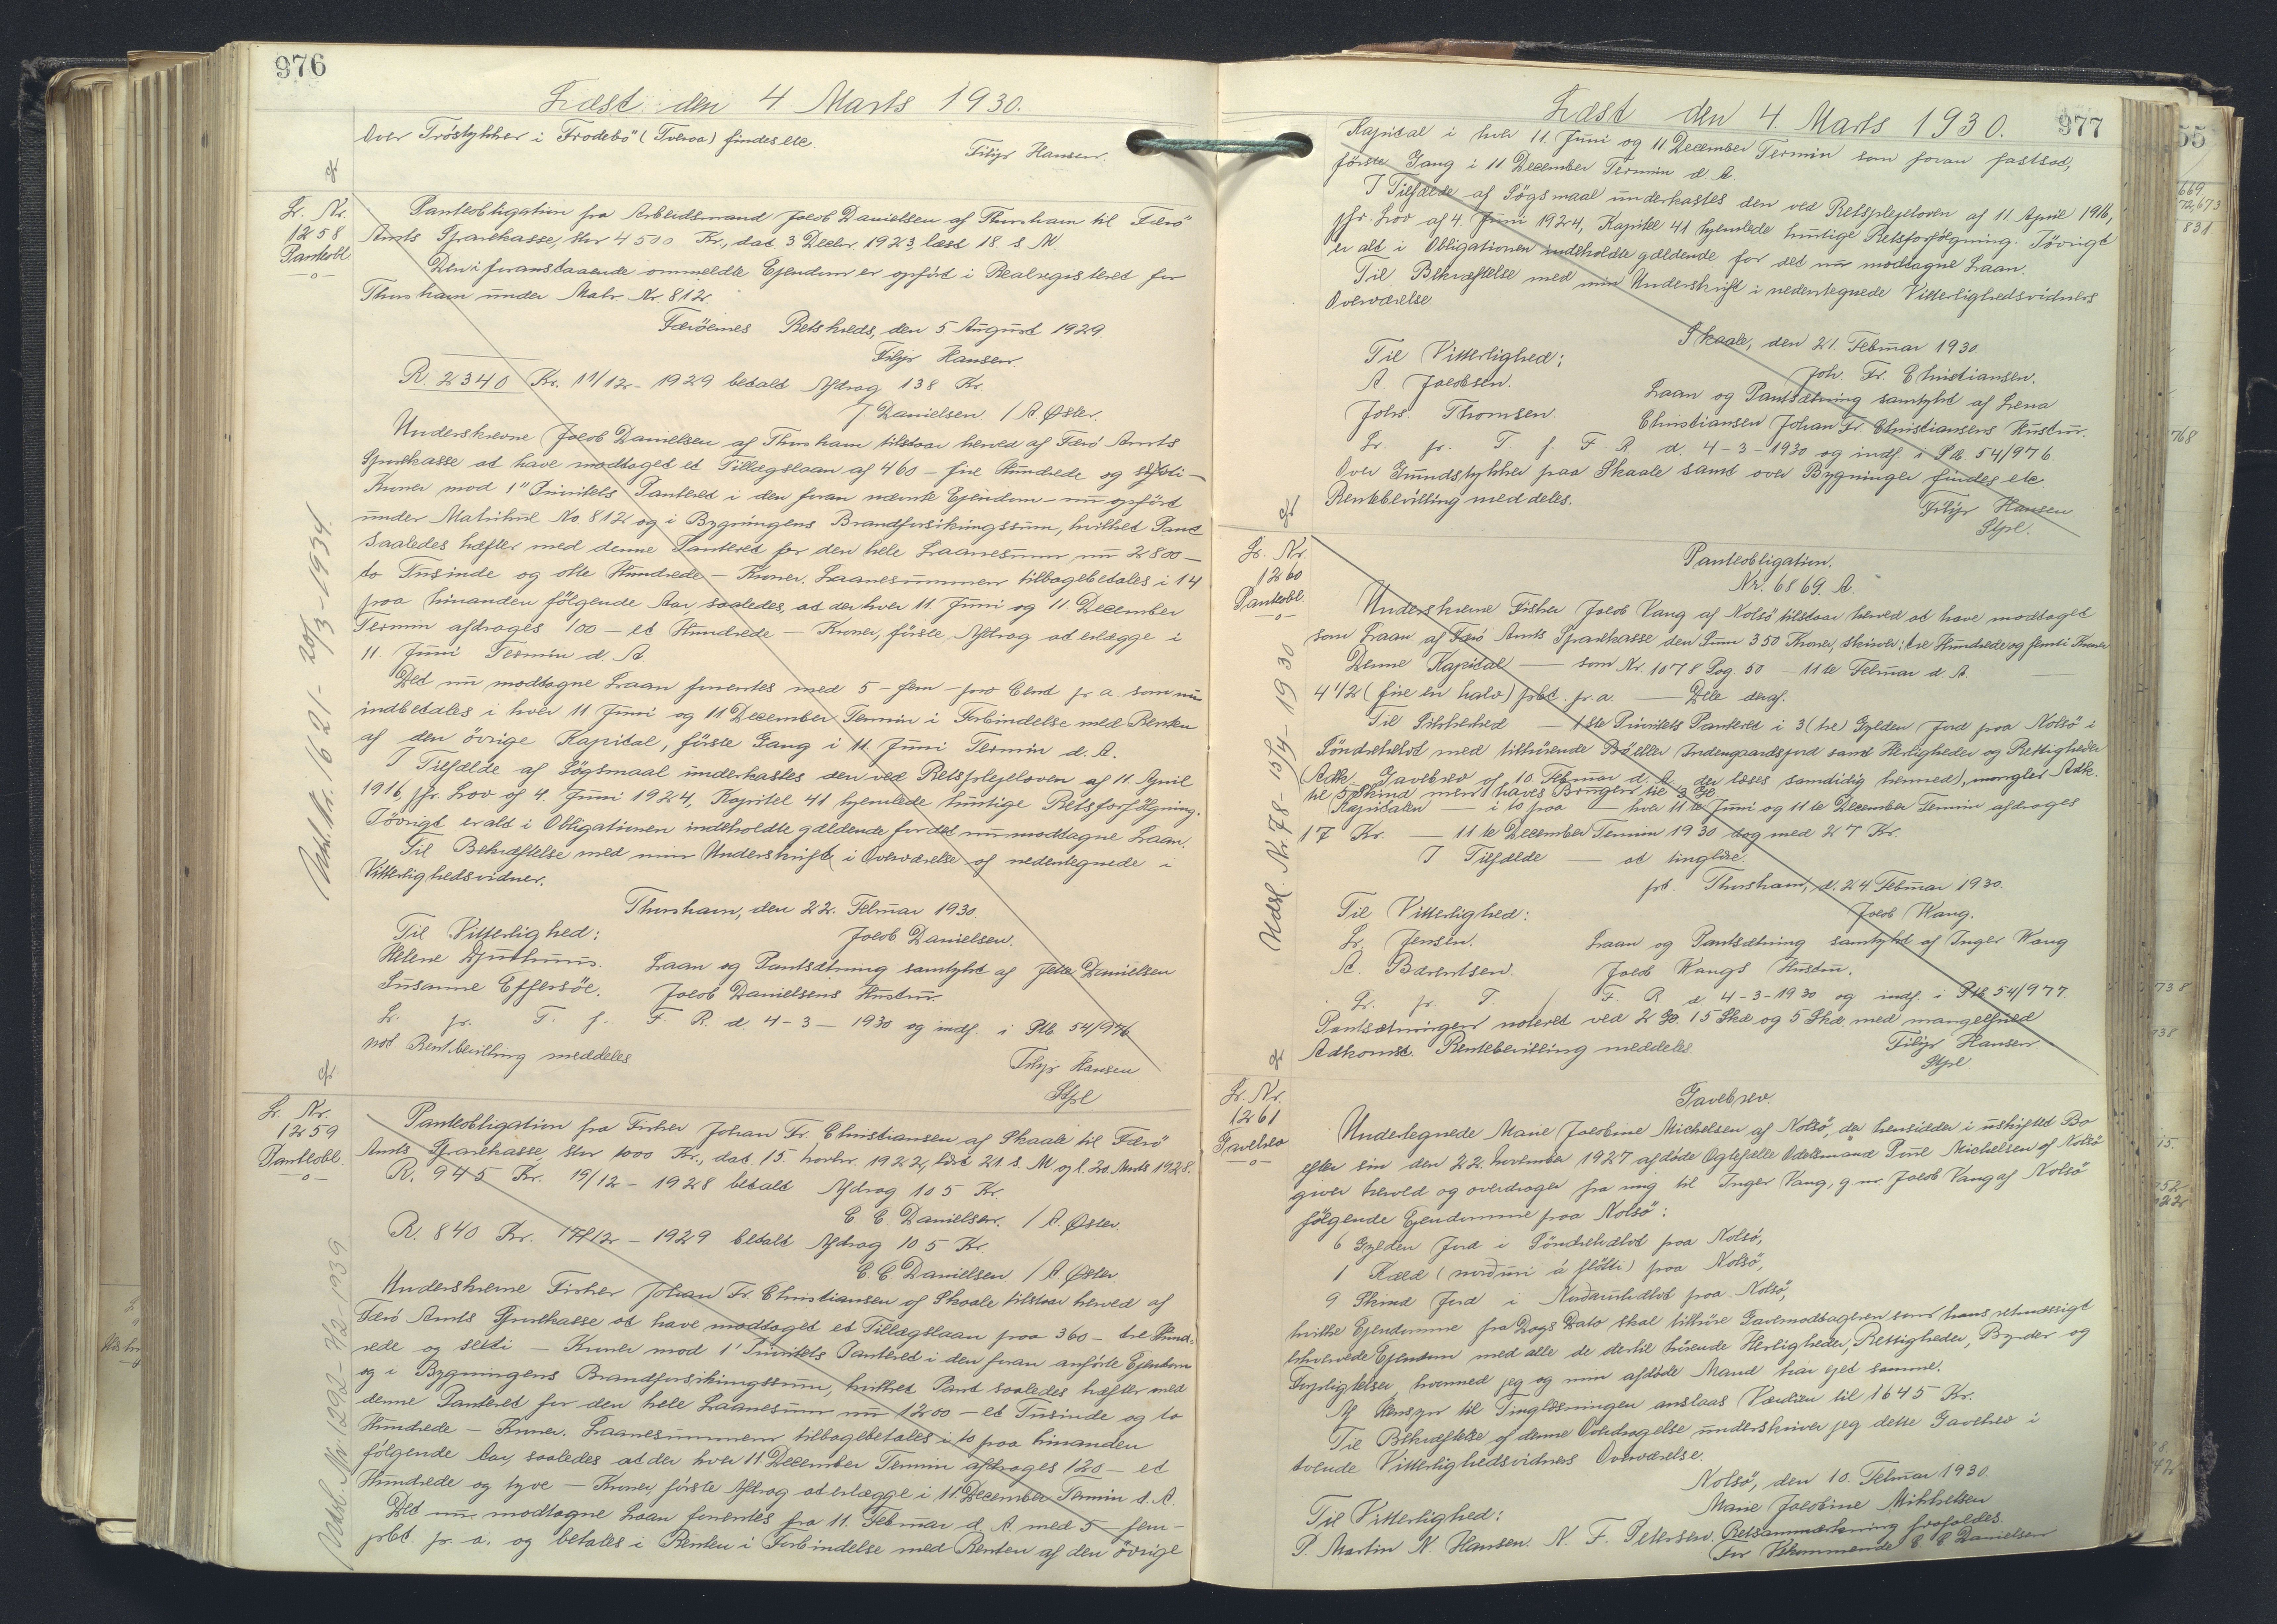 976
Læst den 4 Marts 1930.
Over Tróstykker i Frodebö (Tveraa) findes etc.
Filip Hansen.
L. Nr.
1258
Panteobl
Panteobligation fra Arbeidsmand Jacob Danielsen af Thorshavn til Færö
Amts Sparekasse, stor 4500 Kr., dat. 3 Decbr. 1923, læst 18. s. M.
Den i foranstaaende ommeldte Ejendom er opfört i Realregisteret for
Thorshavn under Matr. Nr. 812.
Færöernes Retskreds, den 5 August 1929.
Filip Hansen.
R. 2340 Kr. 11/12 - 1929 betalt Afdrag 138 Kr.
J. Danielsen / A Øster.
Underskrevne Jacob Danielsen af Thorshavn tilstaar herved af Færö Amts
Sparekasse at have modtaget et Tillægslaan af 460 - fire Hundrede og
Kroner mod 1" Prioritets Panteret i den foran nævnte Ejendom - nu opfört
under Matrikul No 812 og i Bygningens Brandforsikringssum, hvilket Pant
saaledes hæfter med denne Panteret for den hele Laanesum nu 2800 -
to Tusinde og otte Hundrede - Kroner. Laanesummen tilbagebetales i 14
paa hinanden fölgende Aar, saaledes, at der hver 11 Juni og 11 December
Termin afdrages 100 - et Hundrede - Kroner, förste Afdrag at erlægge i
11. Juni Termin d. A.
Det nu modtagne Laan forrentes med 5 - fem - pro Cent pr a. som nu
indbetales i hver 11 Juni og 11 December Termin i Forbindelse med Renten
af den övrige Kapital, förste Gang i 11. Juni Termin d. A.
I Tilfælde af Sögsmaal underkastes den ved Retsplejeloven af 11. April
1916, jfr. Lov af 4. Juni 1924, Kapitel 41 hjemlede hurtige Retsforfölgning.
Iövrigt er alt i Obligationen indeholdte gældende for det nu modtagne Laan.
Til Bekræftelse med min Underskrift i Overværelse af nedentegnede
Vitterlighedsvidner.
Thorshavn, den 22. Februar 1930.
Til Vitterlighed:
Jacob Danielsen.
Helene Djurhuus.
Laan og Pantsætning samtykt af Jette Danielsen
Susanne Effersöe.
Jacob Danielsens Hustru.
L. pr. T. f. F. R. d. 4-3-1930 og indf. i Ptb 54/976
not Rentbevilling meddeles
Filip Hansen
Stpl
Aarl. Nr. 1621 - 20/3 - 1934
L. Nr.
1259
Panteobl.
Panteobligation fra Fisker Johan Fr. Christiansen af Skaale til Færö
Amts Sparekasse, stor 1000 Kr., dat. 15. Novbr. 1922, læst 21. s. M og l. 20. Marts 1928.
R. 945 Kr. 19/12 - 1928 betalt Afdrag 105 Kr.
C. C. Danielsen. / A. Øster.
R. 840 Kr. 17/12 - 1929 betalt Afdrag 105 Kr.
C. C Danielsen / A Øster.
Underskrevne Fisker Johan Fr. Christiansen af Skaale tilstaar herved af
Færö Amts Sparekasse at have modtaget et Tillægslaan paa 360 - tre Hund-
rede og seksti - Kroner mod 1' Prioritets Panteret i den foran anförte Ejendom
og i Bygningens Brandforsikringssum, hvilket Pant saaledes hæfter med
denne Panteret for den hele Laanesum nu 1200 - et Tusinde og to
Hundrede - Kroner. Laanesummen tilbagebetales i to paa hinanden
fölgende Aar, saaledes at der hver 11 December Termin afdrages 120 - et
Hundrede og tyve - Kroner, förste Afdrag at erlægge i 11. December Termin d. A.
Det nu modtagne Laan forrentes fra 11. Februar d. A. med 5 - fem -
pct. pr. a. og betales i Renten i Forbindelse med Renten af den övrige
977
Læst den 4. Marts 1930.
Kapital i hver 11. Juni og 11 December Termin som foran fastsat,
förste Gang i 11 December Termin d. A.
I Tilfælde af Sögsmaal underkastes den ved Retsplejeloven af 11. April 1916,
jfr. Lov af 4. Juni 1924, Kapitel 41 hjemlede hurtige Retsforfölgning. Iövrigt
er alt i Obligationen indeholdte gældende for det nu modtagne Laan.
Til Bekræftelse med min Underskrift i nedentegnede Vitterlighedsvidners
Overværelse
Skaale, den 21. Februar 1930.
Til Vitterlighed:
Joh. Fr. Christiansen.
A. Jacobsen.
Laan og Pantsætning samtykt af Lena
Johs. Thomsen.
Christiansen Johan Fr. Christiansens Hustru.
L. pr. T. f. F. R. d. 4-3-1930 og indf. i Ptb. 54/976.
Over Grundstykker paa Skaale samt over Bygninger findes etc.
Rentebevilling meddeles.
Filip Hansen
Stpl.
L. Nr.
1260
Panteobl.
Panteobligation.
Nr. 6869. A.
Underskrevne Fisker Jacob Vang af Nolsö tilstaar herved at have modtaget
som Laan af Færö Amts Sparekasse den Sum 350 Kroner, skriver: tre Hundrede og femti Kroner
Denne Kapital — som Nr. 1078 Pag. 50 — 11te Februar d. A. —
4 1/2 (fire en halv) pct. pr. a. — Dele deraf.
Til Sikkerhed — 1ste Prioritets Panteret i 3 (tre) Gylden Jord paa Nolsö i
Söndrehælvt med tilhörende Bö eller Indengaardsjord samt Herligheder og Rettigheder
(Adk. Gavebrev af 10. Februar d. A. der læses samtidig hermed), mangler Adk.
til 5 Skind men haves Brugen til 3 G.
Kapitalen — i to paa — hver 11te Juni og 11te December Termin afdrages
17 Kr. — 11te December Termin 1930 dog med 27 Kr.
I Tilfælde — at tinglæse.
pt. Thorshavn, d. 24. Februar 1930.
Til Vitterlighed:
Jacob Wang.
L. Jensen.
Laan og Pantsætning samtykt af Inger Wang
A. Barentsen.
Jacob Wangs Hustru.
L. pr. T. f. F. R. d. 4-3-1930 og indf. i Ptb 54/977.
Pantsætningen noteret ved 2 G. 15 Skd og 5 Skd. med mangelfuld
Adkomst. Rentebevilling meddeles
Filip Hansen
Stpl
Udsl. Nr. 78 - 15/4 - 1930
L. Nr.
1261
Gavebrev
Gavebrev.
Undertegnede Marie Jacobine Michelsen af Nolsö, der hensidder i uskiftet Bo
efter sin den 22. November 1927 afdöde Ægtefælle Odelsmand Poul Michelsen af Nolsö
giver herved og overdrager fra mig til Inger Vang, g. m. Jacob Vang af Nolsö
fölgende Ejendomme paa Nolsö:
6 Gylden Jord i Söndrehælvt paa Nolsö,
1 Kæld (norðuri á fløtti) paa Nolsö,
9 Skind Jord i Nordaruhælvt paa Nolsö,
hvilke Ejendomme fra Dags Dato skal tilhöre Gavemodtageren som hans retmæssigt
erhvervede Ejendom med alle de dertil hörende Herligheder, Rettigheder, Byrder og
Forpligtelser, hvormed jeg og min afdöde Mand har ejet samme.
Af Hensyn til Tinglæsningen anslaas Værdien til 1645 Kr.
Til Bekræftelse af denne Overdragelse underskriver jeg dette Gavebrev i
tvende Vitterlighedsvidners Overværelse.
Nolsö, den 10. Februar 1930.
Til Vitterlighed:
Marie Jacobine Mikkelsen
P. Martin N. Hansen. N. F. Petersen.
Retsanmærkning frafaldes.
For Vedkommende C. C. Danielsen